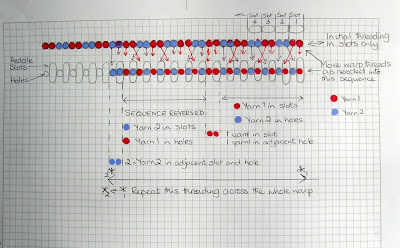 Slot Slot Slot Slot
4 3 2 1
Initial threading
in Slots only
Reddle
Slots
Holes
Move warp threads
as needed into
this sequence
SEQUENCE REVERSED
Yarn 2 in slots
Yarn 1 in holes
Yarn 1 in slots
Yarn 2 in holes
1 yarn in slot
1 yarn in adjacent hole
Yarn 1
Yarn 2
2 = Yarn 2 in adjacent slot and hole
Repeat this threading across the whole warp